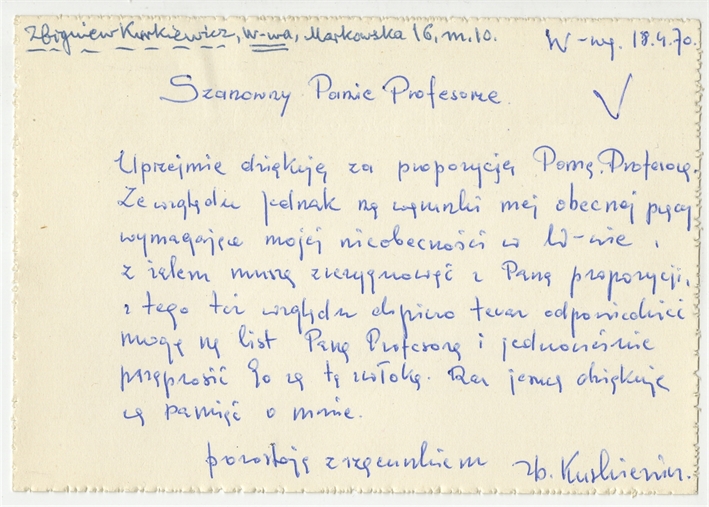 Zbigniew Kurkiewicz, W-wa, Markowska 16, m. 10.
W-wa. 18.4.70.
Szanowny Panie Profesorze
Uprzejmie dziękuję za propozycję Pana Profesora.
Ze względu jednak na warunki mej obecnej pracy
wymagające mojej nieobecności w W-wie,
z żalem muszę zrezygnować z Pana propozycji,
z tego też względu dopiero teraz odpowiedzieć
mogę na list Pana Profesora i jednocześnie
przeprosić Go za tę zwłokę. Raz jeszcze dziękuję
za pamięć o mnie.
pozostaję z szacunkiem Zb. Kurkiewicz.